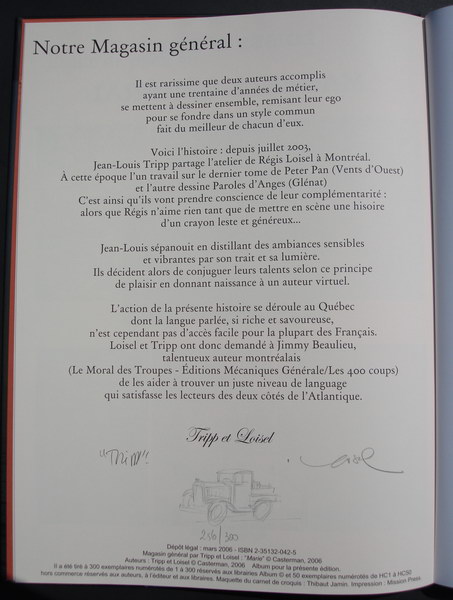 Notre Magasin général :
Il est rarissime que deux auteurs accomplis
ayant une trentaine d'années de métier,
se mettent à dessiner ensemble, remisant leur ego
pour se fondre dans un style commun
fait du meilleur de chacun d'eux.
Voici l'histoire : depuis juillet 2003,
Jean-Louis Tripp partage l'atelier de Régis Loisel à Montréal.
À cette époque l'un travail sur le dernier tome de Peter Pan (Vents d'Ouest)
et l'autre dessine Paroles d'Anges (Glénat)
C'est ainsi qu'ils vont prendre conscience de leur complémentarité :
alors que Régis n'aime rien tant que de mettre en scène une hisoire
d'un crayon leste et généreux...
Jean-Louis sépanouit en distillant des ambiances sensibles
et vibrantes par son trait et sa lumière.
Ils décident alors de conjuguer leurs talents selon ce principe
de plaisir en donnant naissance à un auteur virtuel.
L'action de la présente histoire se déroule au Québec
dont la langue parlée, si riche et savoureuse,
n'est cependant pas d'accès facile pour la plupart des Français.
Loisel et Tripp ont donc demandé à Jimmy Beaulieu,
talentueux auteur montréalais
(Le Moral des Troupes - Éditions Mécaniques Générale/Les 400 coups)
de les aider à trouver un juste niveau de language
qui satisfasse les lecteurs des deux côtés de l'Atlantique.
Tripp et Loisel
"TRIPP" Loisel
256/300
Dépôt légal : mars 2006 - ISBN 2-35132-042-5
Magasin général par Tripp et Loisel : "Marie" © Casterman, 2006
Auteurs : Tripp et Loisel © Casterman, 2006 Album pour la présente édition.
Il a été tiré à 300 exemplaires numérotés de 1 à 300 réservés aux librairies Album © et 50 exemplaires numérotés de HC1 à HC50
hors commerce réservés aux auteurs, à l'éditeur et aux libraires. Maquette du carnet de croquis : Thibaut Jamin. Impression : Mission Press